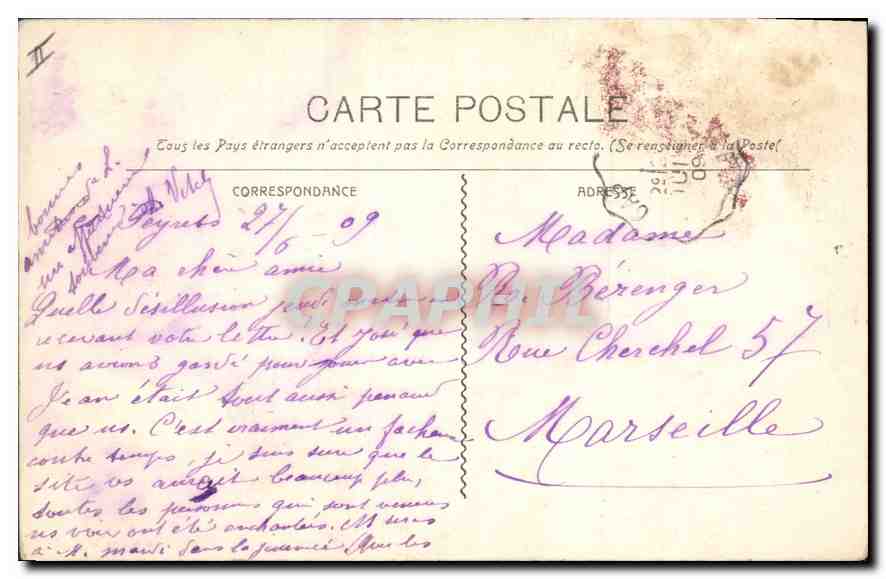 II
CARTE POSTALE
Tous les Pays étrangers n'acceptent pas la Correspondance au recto. (Se renseigner à la Poste(
CORRESPONDANCE
bonnes
un affectueux
souvenir
Peyrets 27/6 - 09
Ma chère amie
Quelle désillusion jeudi
recevant votre lettre. Et José que
ns avions gardé pour jouer avec
Jean était tout aussi penaud
que ns. C'est vraiment un facheux
contre temps, je suis sure que le
site vs aurait beaucoup plu,
toutes les personnes qui sont venues
ns voir ont été enchantées.
à M. mardi dans la journée. Que les
ADRESSE
Madame
Bérenger
Rue Cherchel 57
Marseille
CPAPHIL
09